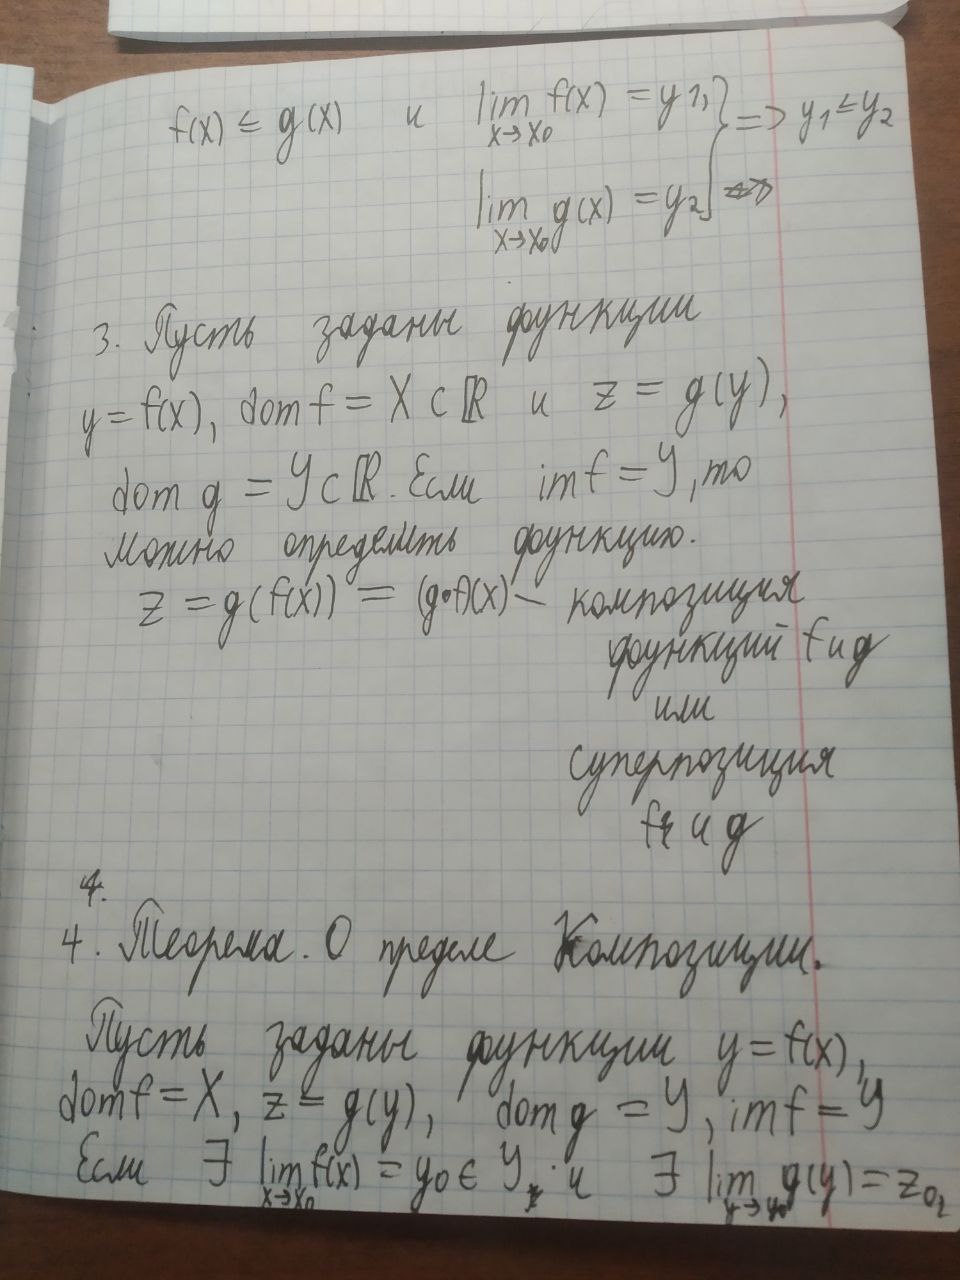 f(x) ≤ g(x) и lim f(x) = y1, } => y₁ ≤ y₂
x→x₀
lim g(x) = y₂
x→x₀
3. Пусть заданы функции
y = f(x), dom f = X ⊂ ℝ и z = g(y),
dom g = Y ⊂ ℝ. Если im f = Y, то
можно определить функцию.
z = g(f(x)) = (g∘f)(x) – композиция
функций f и g
или
суперпозиция
f и g
4.
4. Теорема. О пределе Композиции.
Пусть заданы функции y = f(x),
dom f = X, z = g(y), dom g = Y, im f = Y
Если ∃ lim f(x) = y₀ ∈ Y и ∃ lim g(y) = z₀,
x→x₀ y→y₀